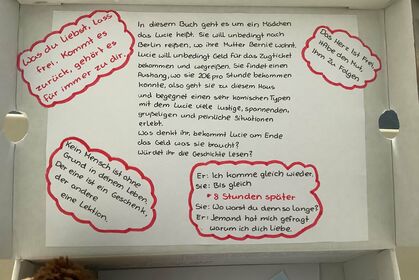 Was du liebst, lass
frei. Kommt es
zurück, gehört es
für immer zu dir.
In diesem Buch geht es um ein Mädchen
das Lucie heißt. Sie will unbedingt nach
Berlin reißen, wo ihre Mutter Bernie wohnt.
Lucie will unbedingt Geld für das Zugticket
bekommen und wegreißen, Sie findet einen
Aushang, wo sie 20€ pro Stunde bekommen
könnte, also geht sie zu diesem Haus
und begegnet einen sehr komischen Typen
mit dem Lucie viele lustige, spannenden,
gruseligen und peinliche Situationen
erlebt.
Was denkt ihr, bekommt Lucie am Ende
das Geld was sie braucht?
Würdet ihr die Geschichte Lesen?
Das Herz ist frei,
Habe den Mut,
Ihm zu Folgen
Kein Mensch ist ohne
Grund in deinem Leben.
Der eine ist ein Geschenk,
der andere
eine Lektion.
Er: Ich komme gleich wieder.
Sie: Bis gleich
* 8 Stunden später
Sie: Wo warst du denn so lange?
Er: Jemand hat mich gefragt
warum ich dich Liebe.